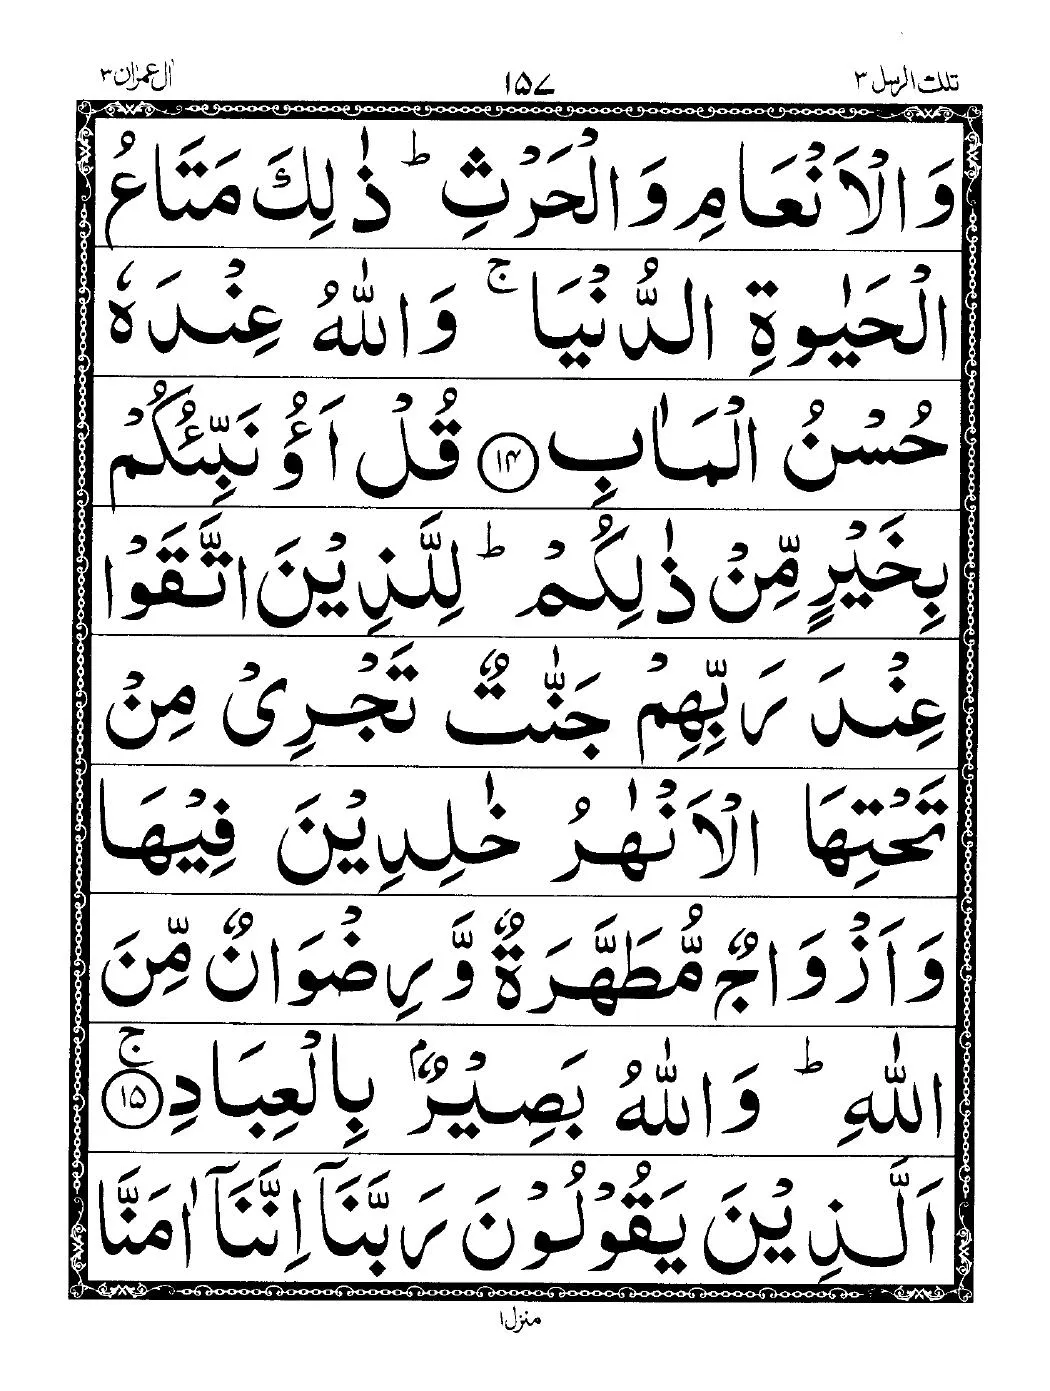 تلك الرسل ٣
١٥٧
اٰل عمرٰن ٣
وَالْاَنْعَامِ وَالْحَرْثِ ؕ ذٰلِكَ مَتَاعُ
الْحَيٰوةِ الدُّنْيَا ۚ وَاللّٰهُ عِنْدَهٗ
حُسْنُ الْمَاٰبِ ﴿١۴﴾ قُلْ اَؤُنَبِّئُكُمْ
بِخَيْرٍ مِّنْ ذٰلِكُمْ ؕ لِلَّذِيْنَ اتَّقَوْا
عِنْدَ رَبِّهِمْ جَنّٰتٌ تَجْرِىْ مِنْ
تَحْتِهَا الْاَنْهٰرُ خٰلِدِيْنَ فِيْهَا
وَاَزْوَاجٌ مُّطَهَّرَةٌ وَّرِضْوَانٌ مِّنَ
اللّٰهِ ؕ وَاللّٰهُ بَصِيْرٌۢ بِالْعِبَادِ ۚ ﴿١۵﴾
اَلَّذِيْنَ يَقُوْلُوْنَ رَبَّنَاۤ اِنَّنَاۤ اٰمَنَّا
منزل ١